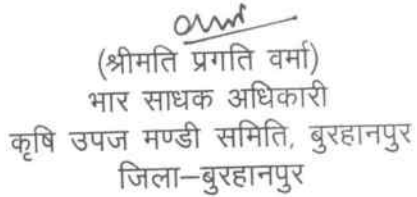 (श्रीमति प्रगति वर्मा)
भार साधक अधिकारी
कृषि उपज मण्डी समिति, बुरहानपुर
जिला–बुरहानपुर